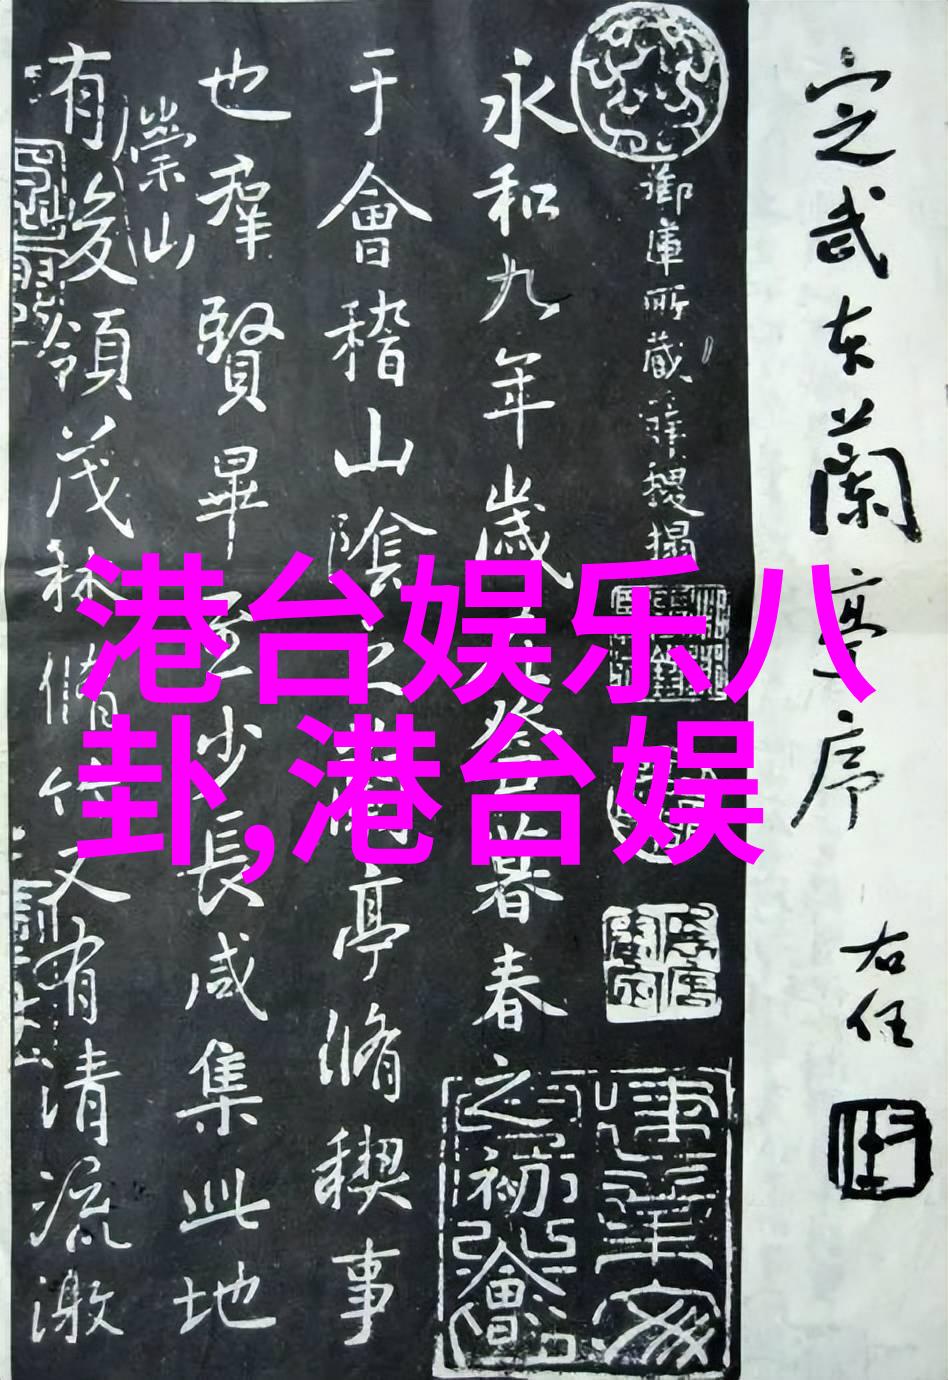 定武本蘭亭序
右任
御庫所藏禊搨
永和九年歲暮春之初會
于會稽山陰之蘭亭脩稧事
也羣賢畢至少長咸集此地
崇山
有峻領茂林脩竹又有清流激
港台娱乐八
卦,港台娱